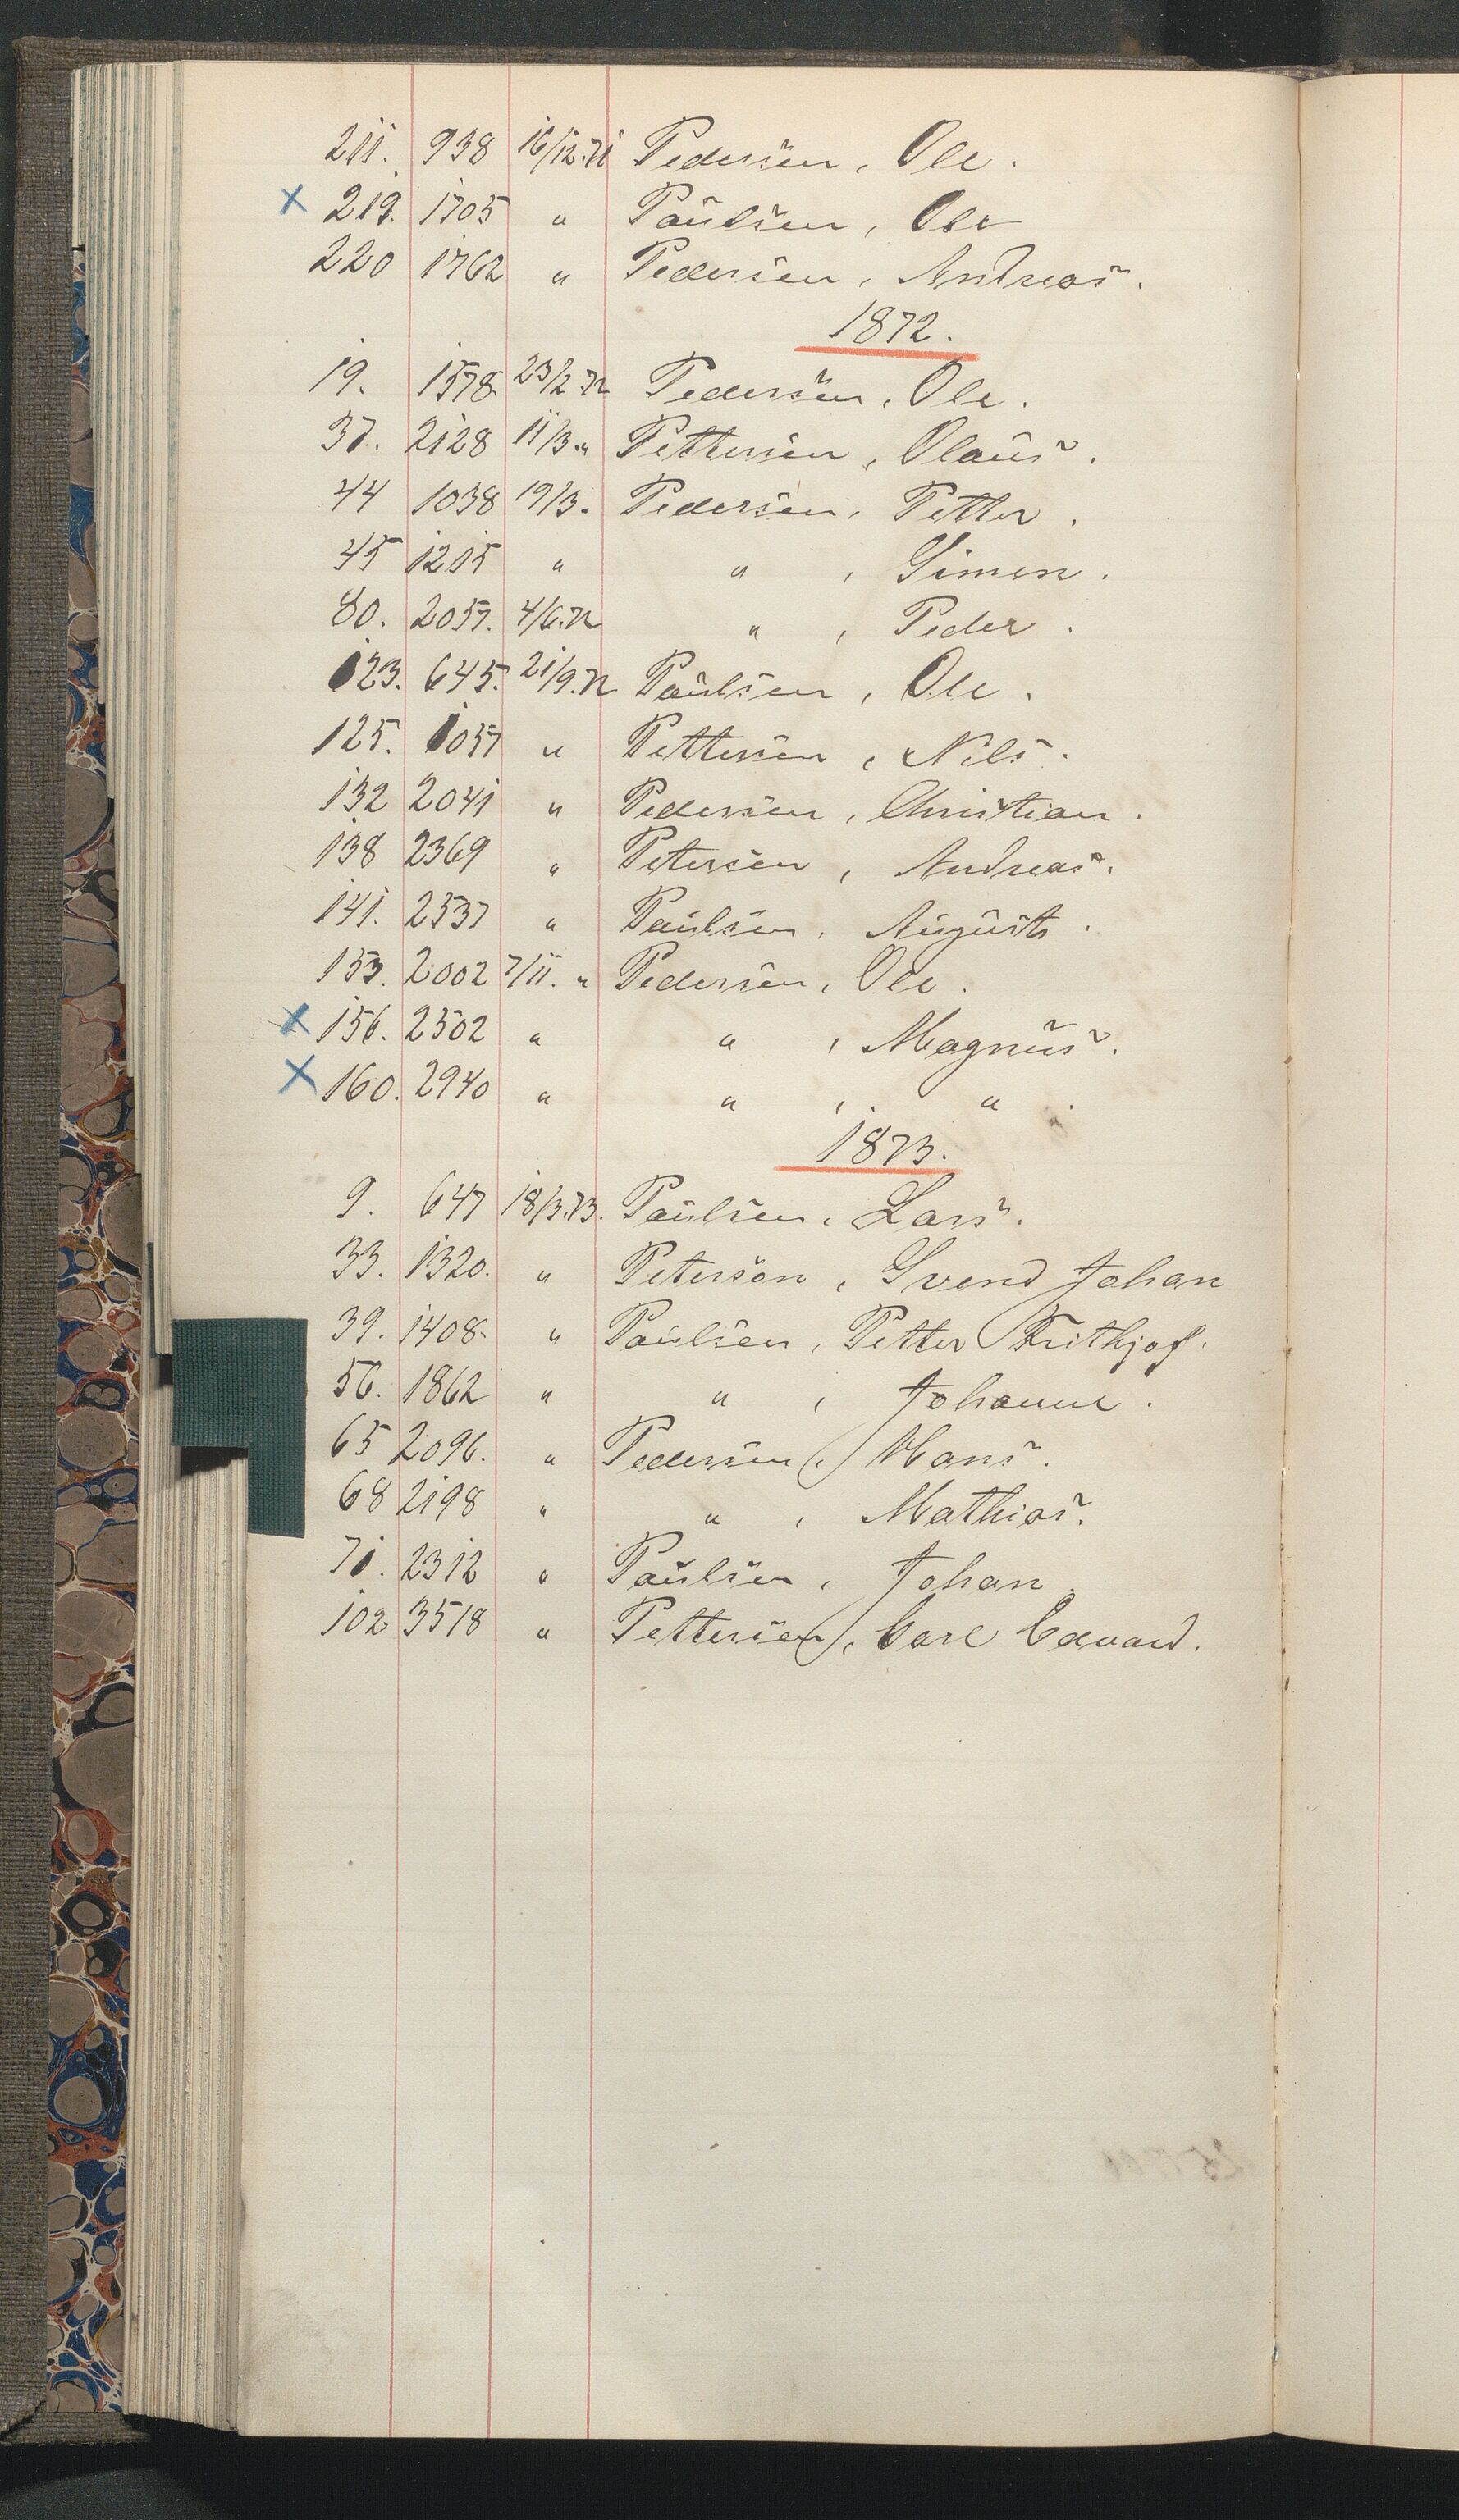 211. 938 16/12.71 Pedersen, Ole.
x 219. 1705 " Paulsen, Ole
220 1762 " Pedersen, Andreas.
1872.
19. 1578. 23/2 72 Pedersen, Ole.
37. 2128 11/3. " Pettersen, Olaus.
44 1038 19/3. Pedersen, Petter.
45 1215 " " , Simen.
80. 2057. 4/6.72 " , Peder.
123. 645. 21/9.72 Paulsen, Ole.
125. 1037 " Pettersen, Nils.
132 2041 " Pedersen, Christian.
138 2369 " Petersen, Andreas.
141. 2537 " Paulsen, Augusta.
153. 2002 7/11. " Pedersen, Ole.
x 156. 2502 " " , Magnus.
x 160. 2940 " " , " .
1873.
9. 647 18/3.73. Paulsen, Lars.
33. 1320. " Peterson, Svend Johan
39. 1408. " Paulsen, Petter Frithjof.
56. 1862 " " , Johanne.
65 2096. " Pedersen, Hans.
68 2198 " " , Mathias.
71. 2312 " Paulsen, Johan.
102 3518 " Pettersen, Carl Edvard.